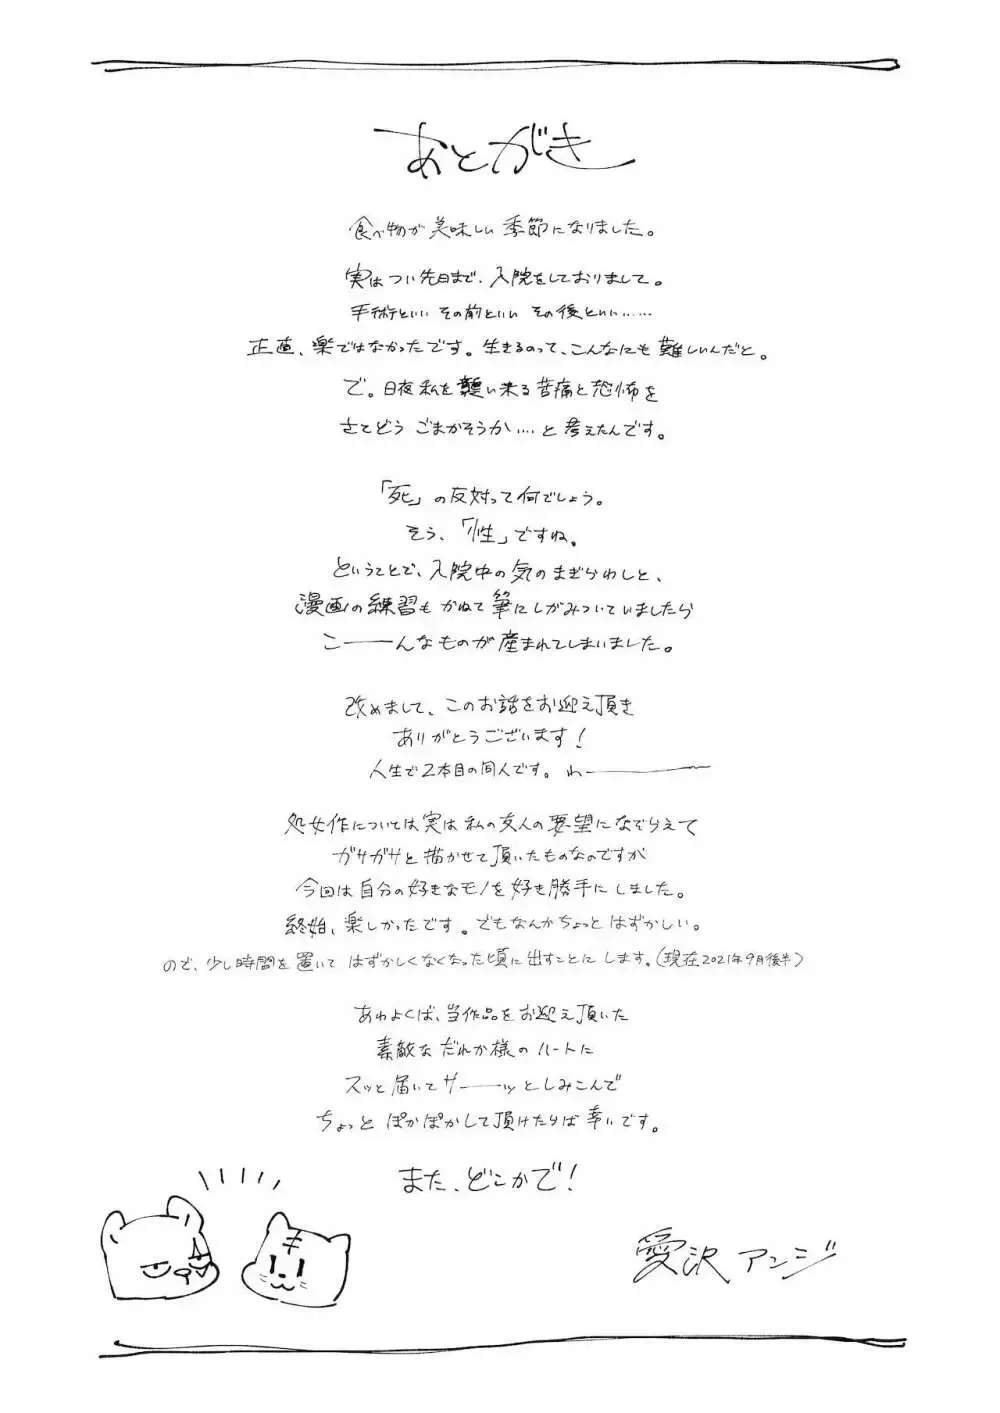 あとがき
食べ物が美味しい季節になりました。
実はつい先日まで、入院をしておりまして。
手術といい その前といい その後といい……
正直、楽ではなかったです。生きるのって、こんなにも難しいんだと。
で。日夜私を襲い来る苦痛と恐怖を
さてどう ごまかそうか…と 考えたんです。
「死」の反対って何でしょう。
そう、「性」ですね。
ということで、入院中の気のまぎらわしと、
漫画の練習も かねて 筆にしがみついていましたら
こーーんなものが産まれてしまいました。
改めまして、このお話をお迎え頂き
ありがとうございます!
人生で2本目の同人です。わーーー
処女作については実は私の友人の要望になぞらえて
ガサガサと描かせて頂いたものなのですが
今回は自分の好きなモノを好き勝手にしました。
終始、楽しかったです。でもなんかちょっとはずかしい。
ので、少し時間を置いて はずかしくなくなった頃に出すことにします。(現在2021年9月後半)
あわよくば、当作品をお迎え頂いた
素敵な だれか様のハートに
スッと届いてサーーッとしみこんで
ちょっと ぽかぽかして頂けたりば幸いです。
また、どこかで!
愛沢 アンジ